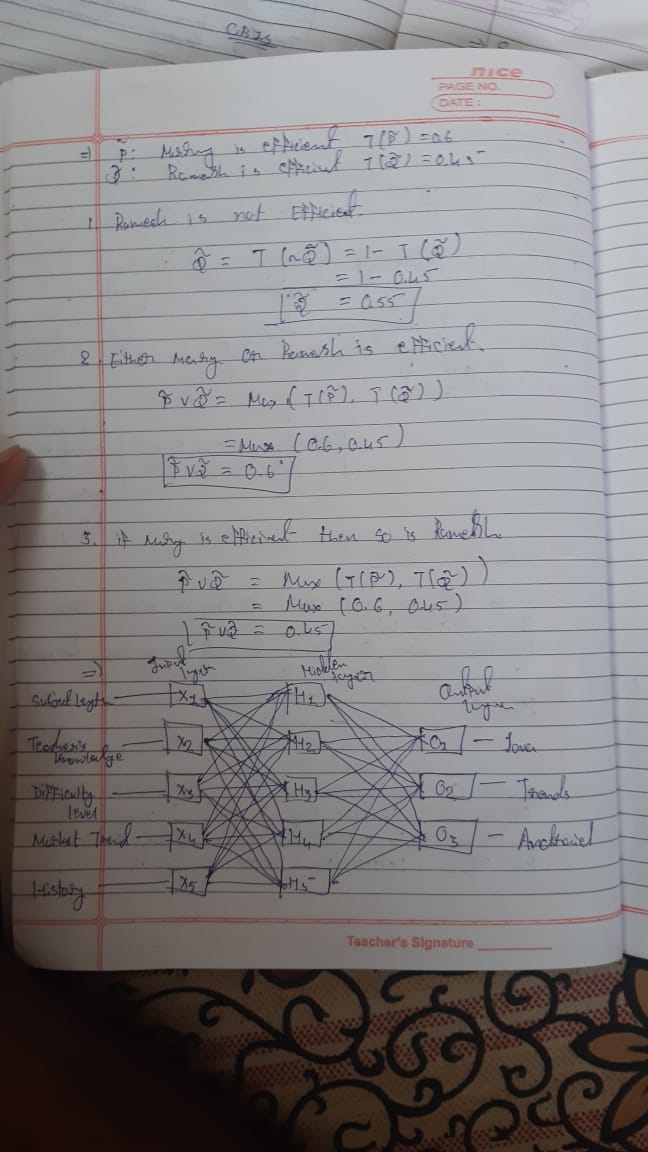 CBIS
nice
PAGE NO.
DATE :
⇒ P̃ : Mary is efficient T(P̃) = 0.6
Q̃ : Ramesh is efficient T(Q̃) = 0.45
1. Ramesh is not Efficient.
Q̃ = T(~Q̃) = 1 - T(Q̃)
= 1 - 0.45
Q̃ = 0.55
2. Either Mary or Ramesh is efficient
P̃ ∨ Q̃ = Max (T(P̃), T(Q̃))
= Max (0.6, 0.45)
P̃ ∨ Q̃ = 0.6
3. if Mary is efficient then so is Ramesh
P̃ ∨ Q̃ = Max (T(P̃), T(Q̃))
= Max (0.6, 0.45)
P̃ ∨ Q̃ = 0.45
⇒ Input layer Hidden layer Output layer
Subject X1 H1
Teacher's knowledge X2 H2 O1 - Java
Difficulty level X3 H3 O2 - Trends
Market Trend X4 H4 O3 -
History X5 H5
Teacher's Signature